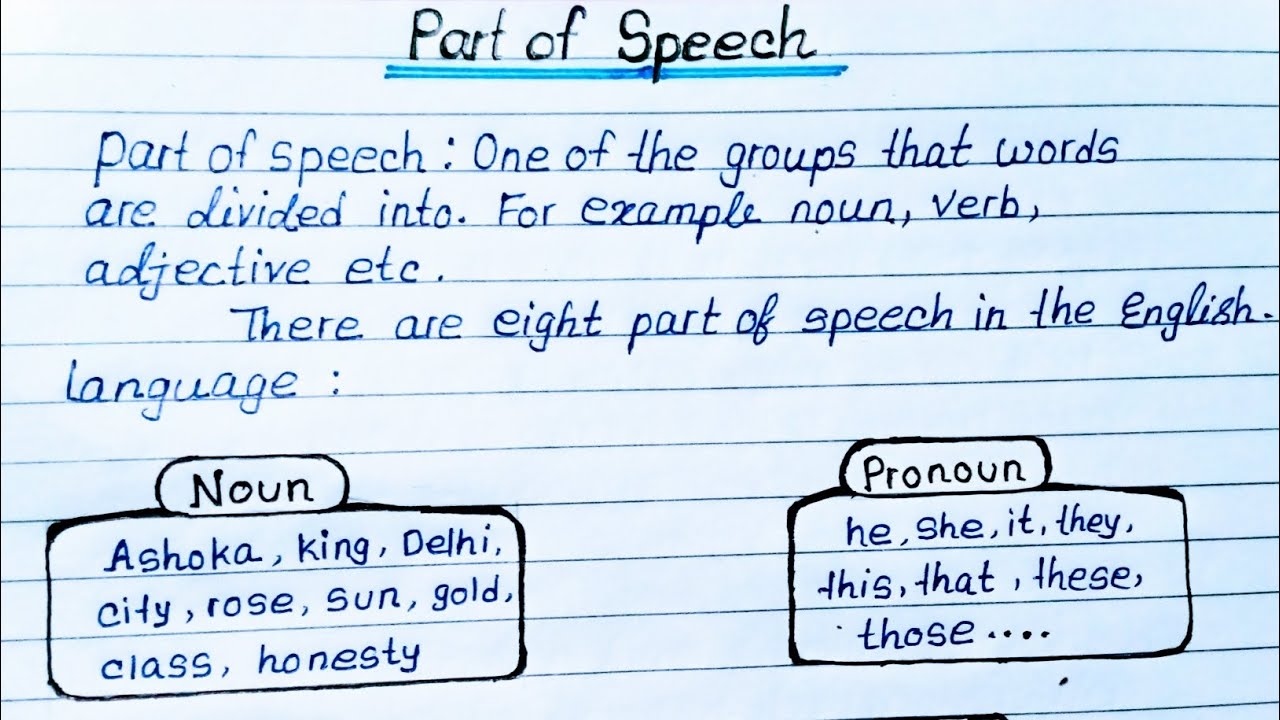 Part of Speech
Part of speech : One of the groups that words
are divided into. For example noun, verb,
adjective etc.
There are eight part of speech in the English.
language :
Noun
Ashoka, king, Delhi,
city, rose, sun, gold,
class, honesty
Pronoun
he, she, it, they,
this, that, these,
those ....